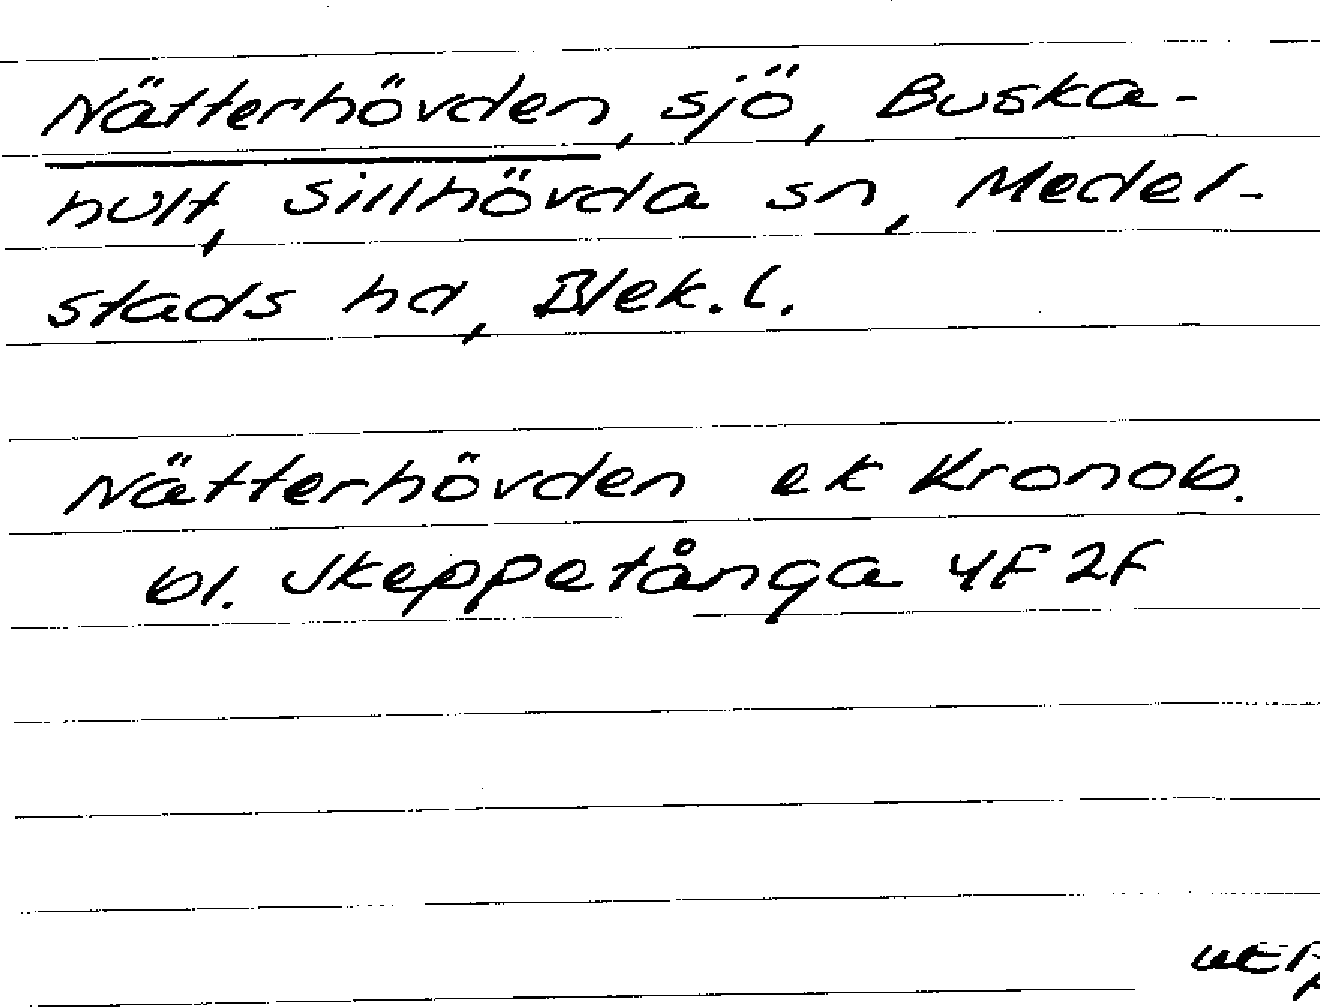 Nätterhövden, sjö, Buska-
hult, Sillhövda sn, Medel-
stads hd, Blek. l.
Nätterhövden ek Kronob.
bl. Skeppetånga 4F 2f